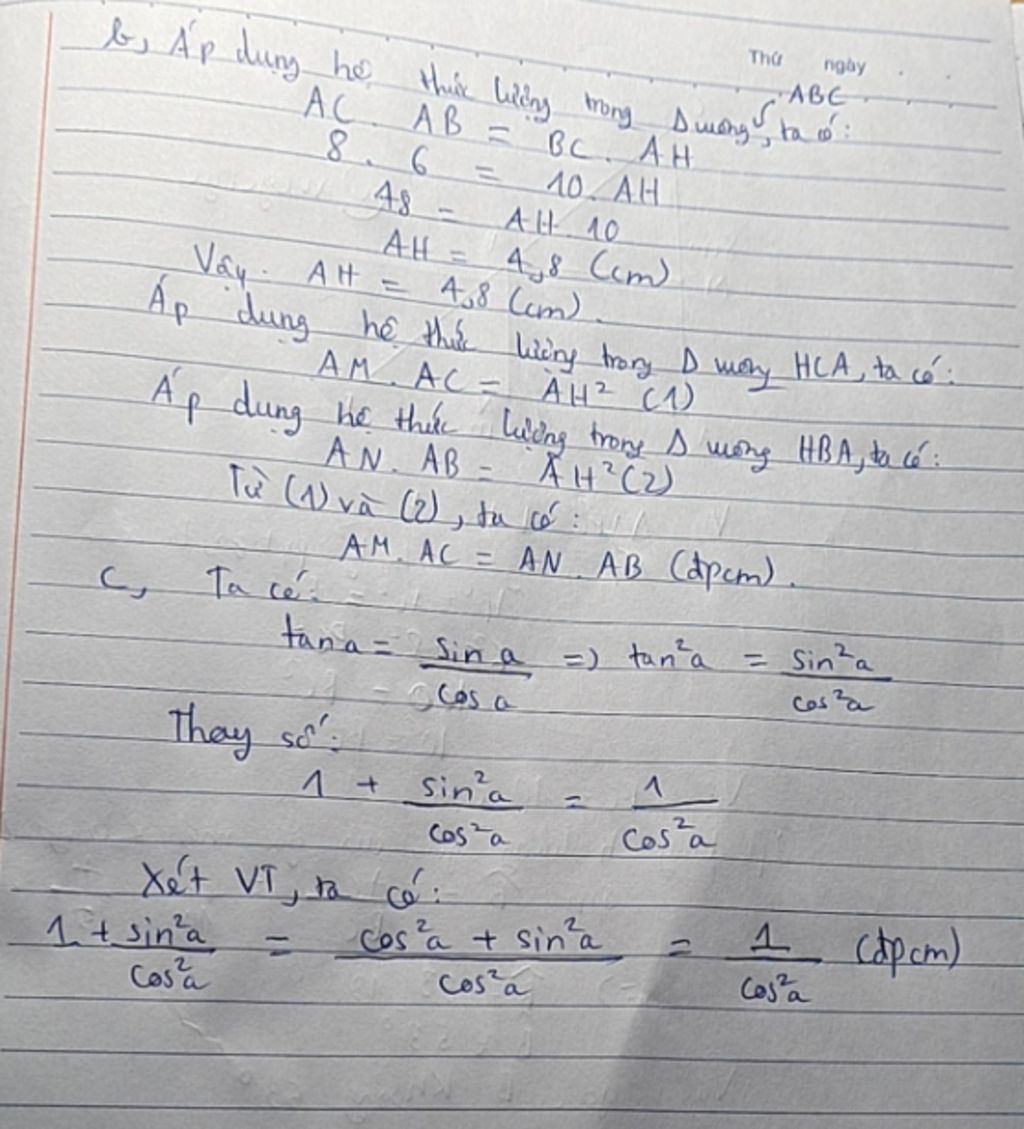 Thứ ngày
b, Áp dụng hệ thức lượng trong Δ vuông ABC, ta có:
AC . AB = BC . AH
8 . 6 = 10 . AH
48 = AH . 10
AH = 4,8 (cm)
Vậy . AH = 4,8 (cm) .
Áp dụng hệ thức lượng trong Δ vuông HCA, ta có:
AM . AC = AH² (1)
Áp dụng hệ thức lượng trong Δ vuông HBA, ta có:
AN . AB = AH² (2)
Từ (1) và (2), ta có :
AM . AC = AN . AB (đpcm) .
c, Ta có:
tan a = sin a / cos a => tan²a = sin²a / cos²a
Thay số:
1 + sin²a / cos²a = 1 / cos²a
Xét VT, ta có:
1 + sin²a / cos²a = cos²a + sin²a / cos²a = 1 / cos²a (đpcm)